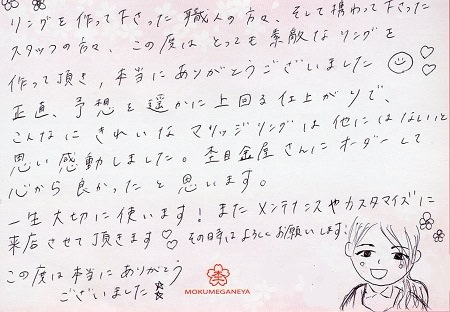 リングを作って下さった職人の方々、そして携わって下さった
スタッフの方々、この度はとっても素敵なリングを
作って頂き、本当にありがとうございました
正直、予想を遥かに上回る仕上がりで、
こんなにきれいなマリッジリングは他にはないと
思い感動しました。杢目金屋さんにオーダーして
心から良かったと思います。
一生大切に使います!またメンテナンスやカスタマイズに
来店させて頂きます♡その時はよろしくお願いします。
この度は本当にありがとう
ございました
MOKUMEGANEYA